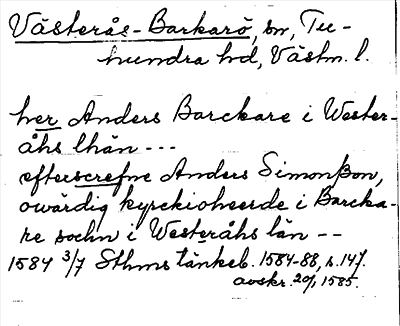 Västerås-Barkarö, sn, Tu-
hundra hd, Västm. l.
her Anders Barckare i Wester-
åhs lhän ---
efterscrefne Anders Simonßon,
owärdig kyrckioheerde i Barcka-
re sochn i Westeråhs län --
1584 3/7 Sthms tänkeb. 1584-88, s. 147.
avskr. 20/1 1585.